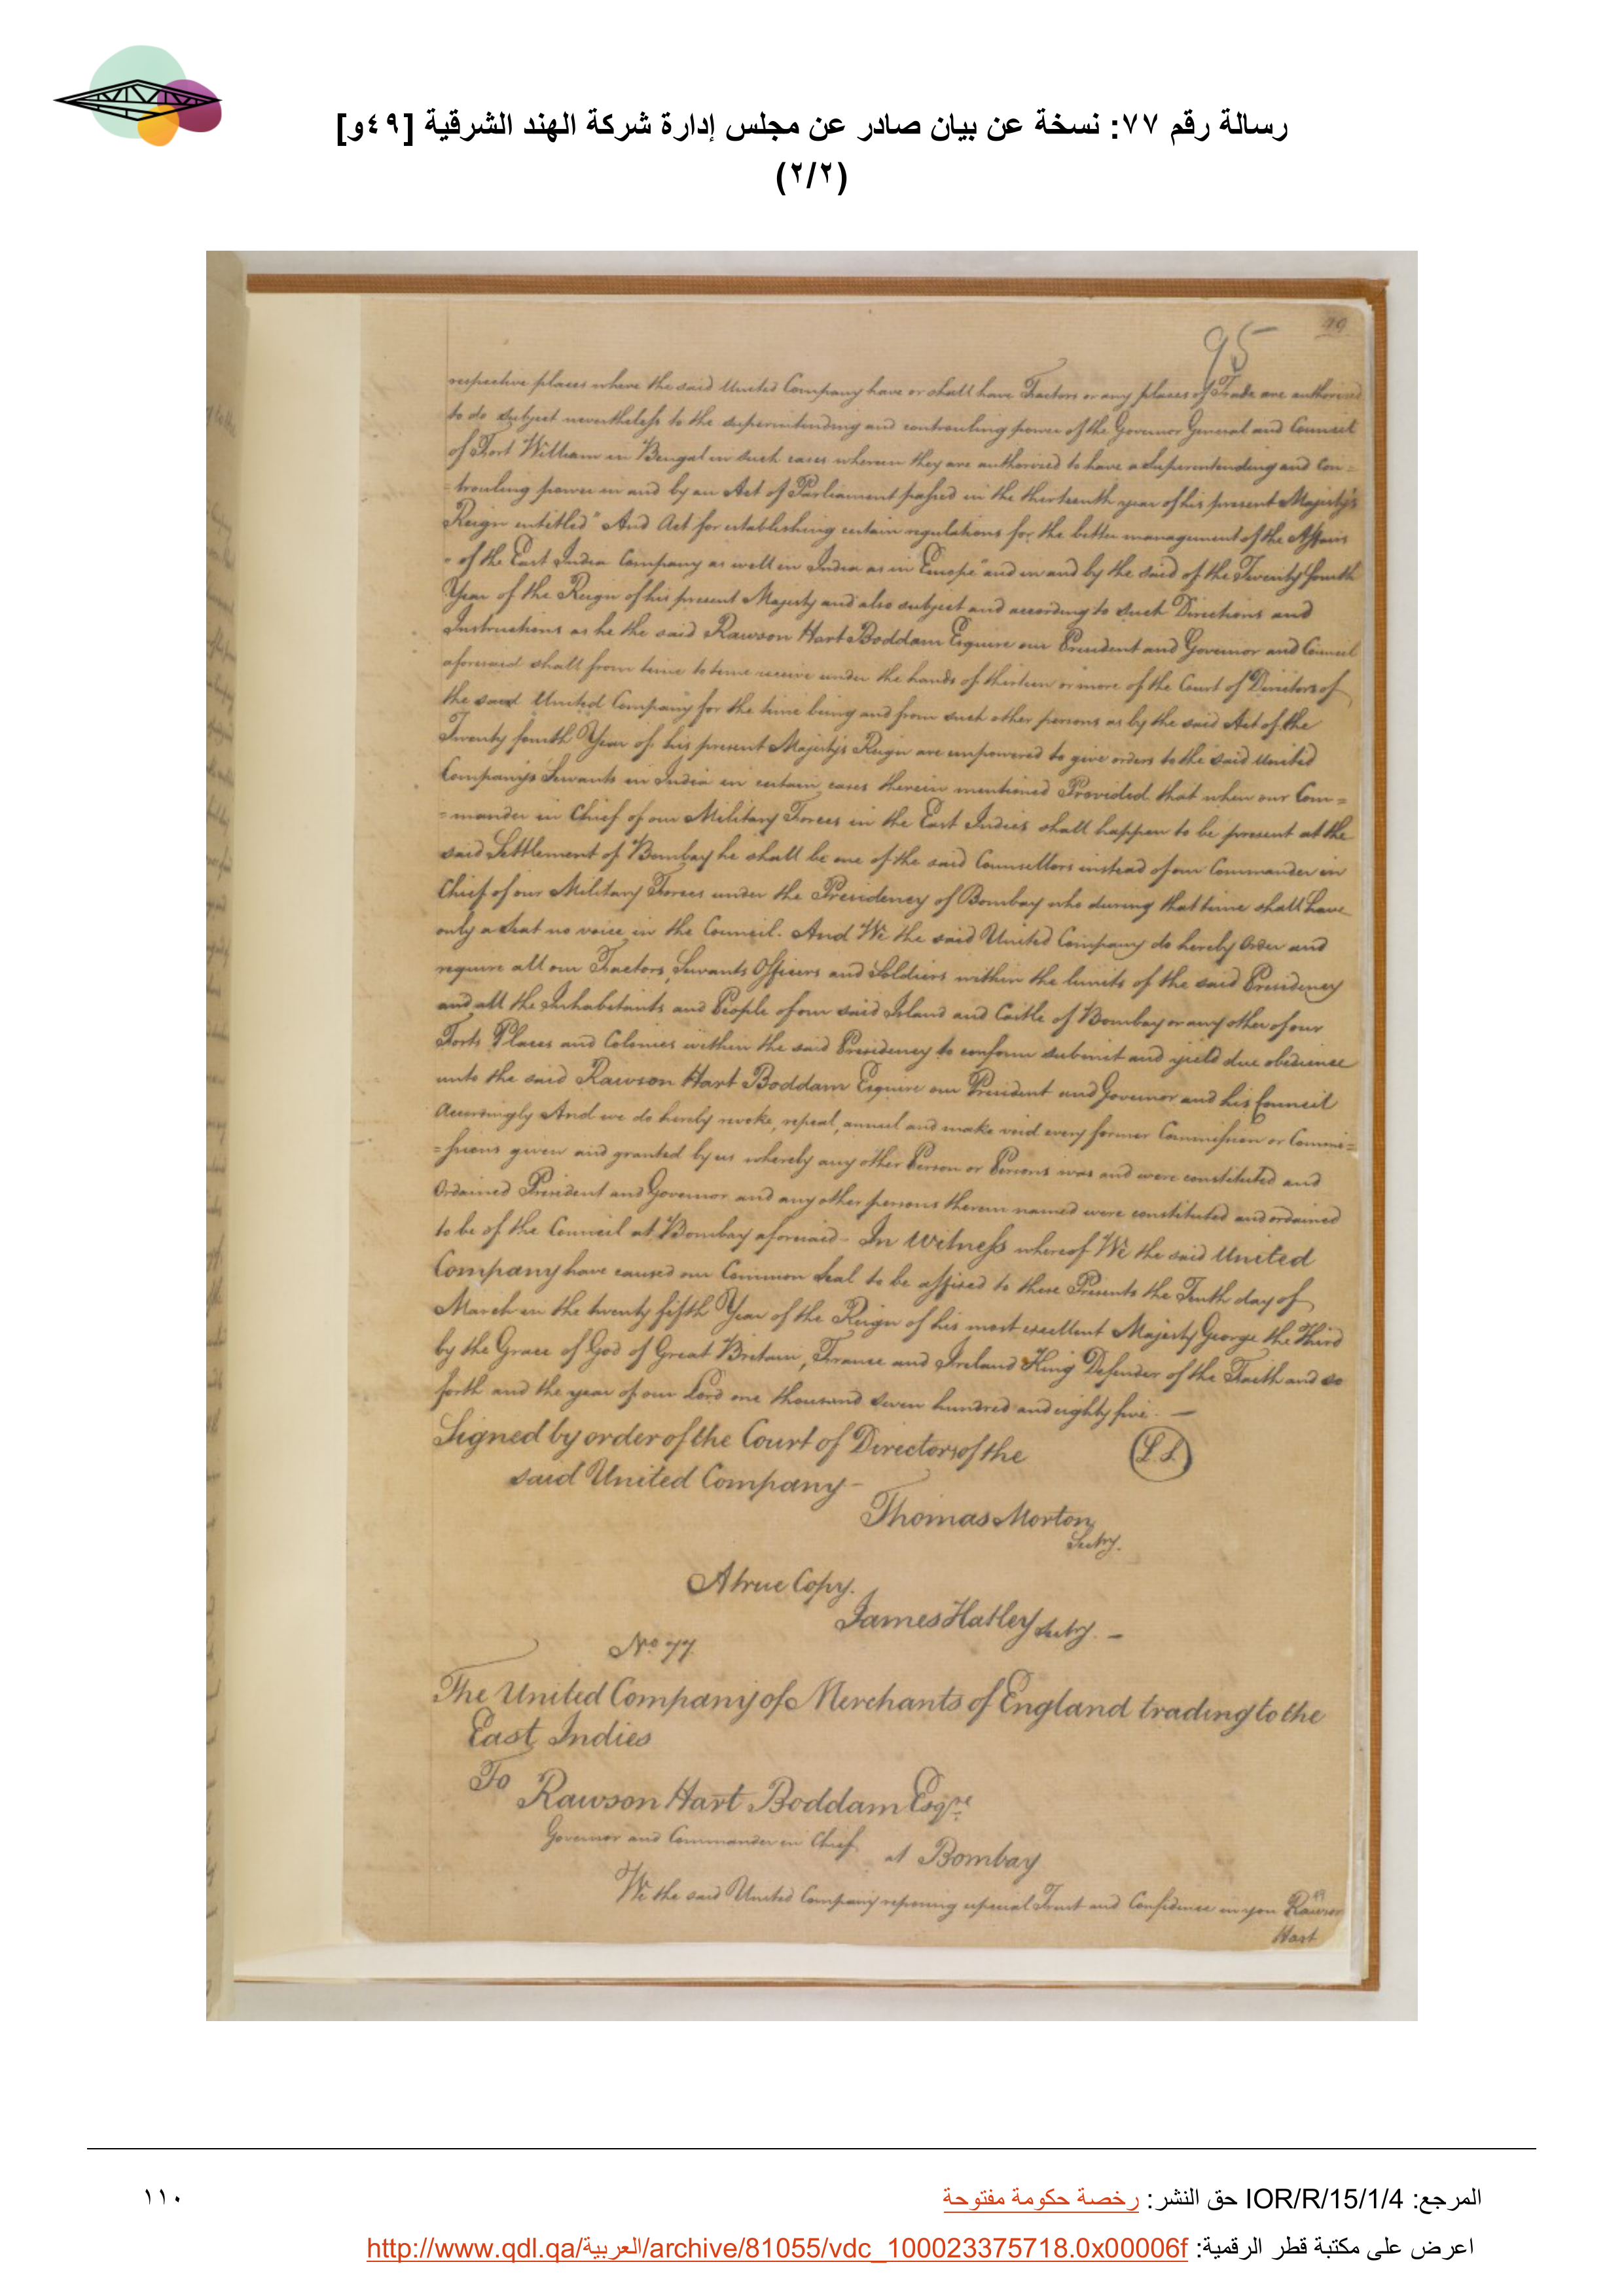 رسالة رقم ٧٧: نسخة عن بيان صادر عن مجلس إدارة شركة الهند الشرقية [٤٩و]
(٢/٢)
95
49
respective places where the said United Company have or shall have Factors or any places of Trade are authorized
to do subject nevertheless to the superintending and controuling power of the Governor General and Council
of Fort William in Bengal in such cases wherein they are authorized to have a Superintending and Con=
=trouling power in and by an Act of Parliament passed in the thirteenth year of his present Majesty's
Reign entitled "And Act for establishing certain regulations for the better management of the Affairs
" of the East India Company as well in India as in Europe" and in and by the said of the Twenty fourth
Year of the Reign of his present Majesty and also subject and according to such Directions and
Instructions as he the said Rawson Hart Boddam Esquire our President and Governor and Council
aforesaid shall from time to time receive under the hands of thirteen or more of the Court of Directors of
the said United Company for the time being and from such other persons as by the said Act of the
Twenty fourth Year of his present Majesty's Reign are empowered to give orders to the said United
Company's Servants in India in certain cases therein mentioned Provided that when our Com=
=mander in Chief of our Military Forces in the East Indies shall happen to be present at the
said Settlement of Bombay he shall be one of the said Counsellors instead of our Commander in
Chief of our Military Forces under the Presidency of Bombay who during that time shall have
only a seat no voice in the Council. And We the said United Company do hereby Order and
require all our Factors, Servants Officers and Soldiers within the limits of the said Presidency
and all the Inhabitants and People of our said Island and Castle of Bombay or any other of our
Forts Places and Colonies within the said Presidency to conform submit and yield due obedience
unto the said Rawson Hart Boddam Esquire our President and Governor and his Council
Accordingly And we do hereby revoke, repeal, annul and make void every former Commission or Commi=
=ssions given and granted by us whereby any other Person or Persons was and were constituted and
Ordained President and Governor and any other persons therein named were constituted and ordained
to be of the Council at Bombay aforesaid - In Witness whereof We the said United
Company have caused our Common Seal to be affixed to these Presents the Tenth day of
March in the twenty fifth Year of the Reign of his most excellent Majesty George the Third
by the Grace of God of Great Britain, France and Ireland King Defender of the Faith and so
forth and the year of our Lord one thousand seven hundred and eighty five. —
Signed by order of the Court of Directors of the
said United Company -
L.S.
Thomas Morton
Secty.
A true Copy.
James Hatley Secty. -
No 77
The United Company of Merchants of England trading to the
East Indies
To Rawson Hart Boddam Esqre
Governor and Commander in Chief at Bombay
We the said United Company reposing especial Trust and Confidence in you Rawson
Hart
المرجع: IOR/R/15/1/4 حق النشر: رخصة حكومة مفتوحة
١١٠
اعرض على مكتبة قطر الرقمية: http://www.qdl.qa/العربية/archive/81055/vdc_100023375718.0x00006f